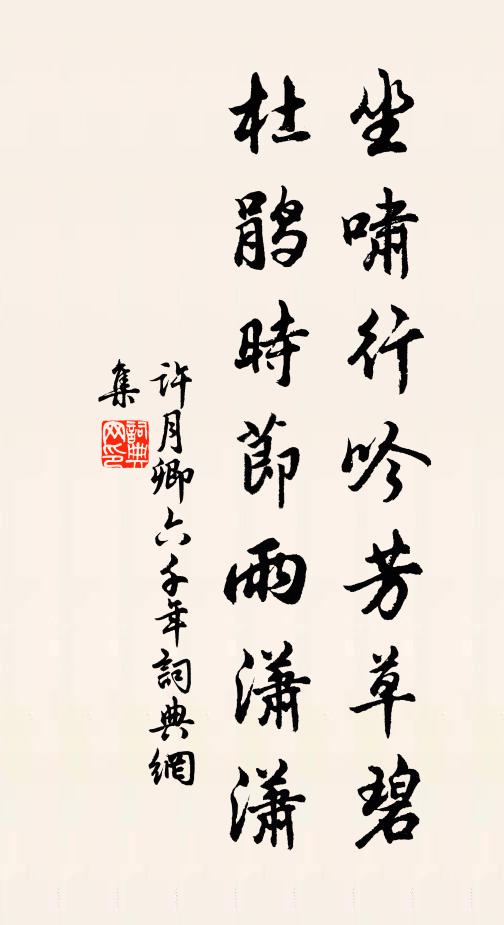 坐嘯行吟芳草碧
杜鵑時節雨瀟瀟
許月卿六千年詞典網
集
詞典網印